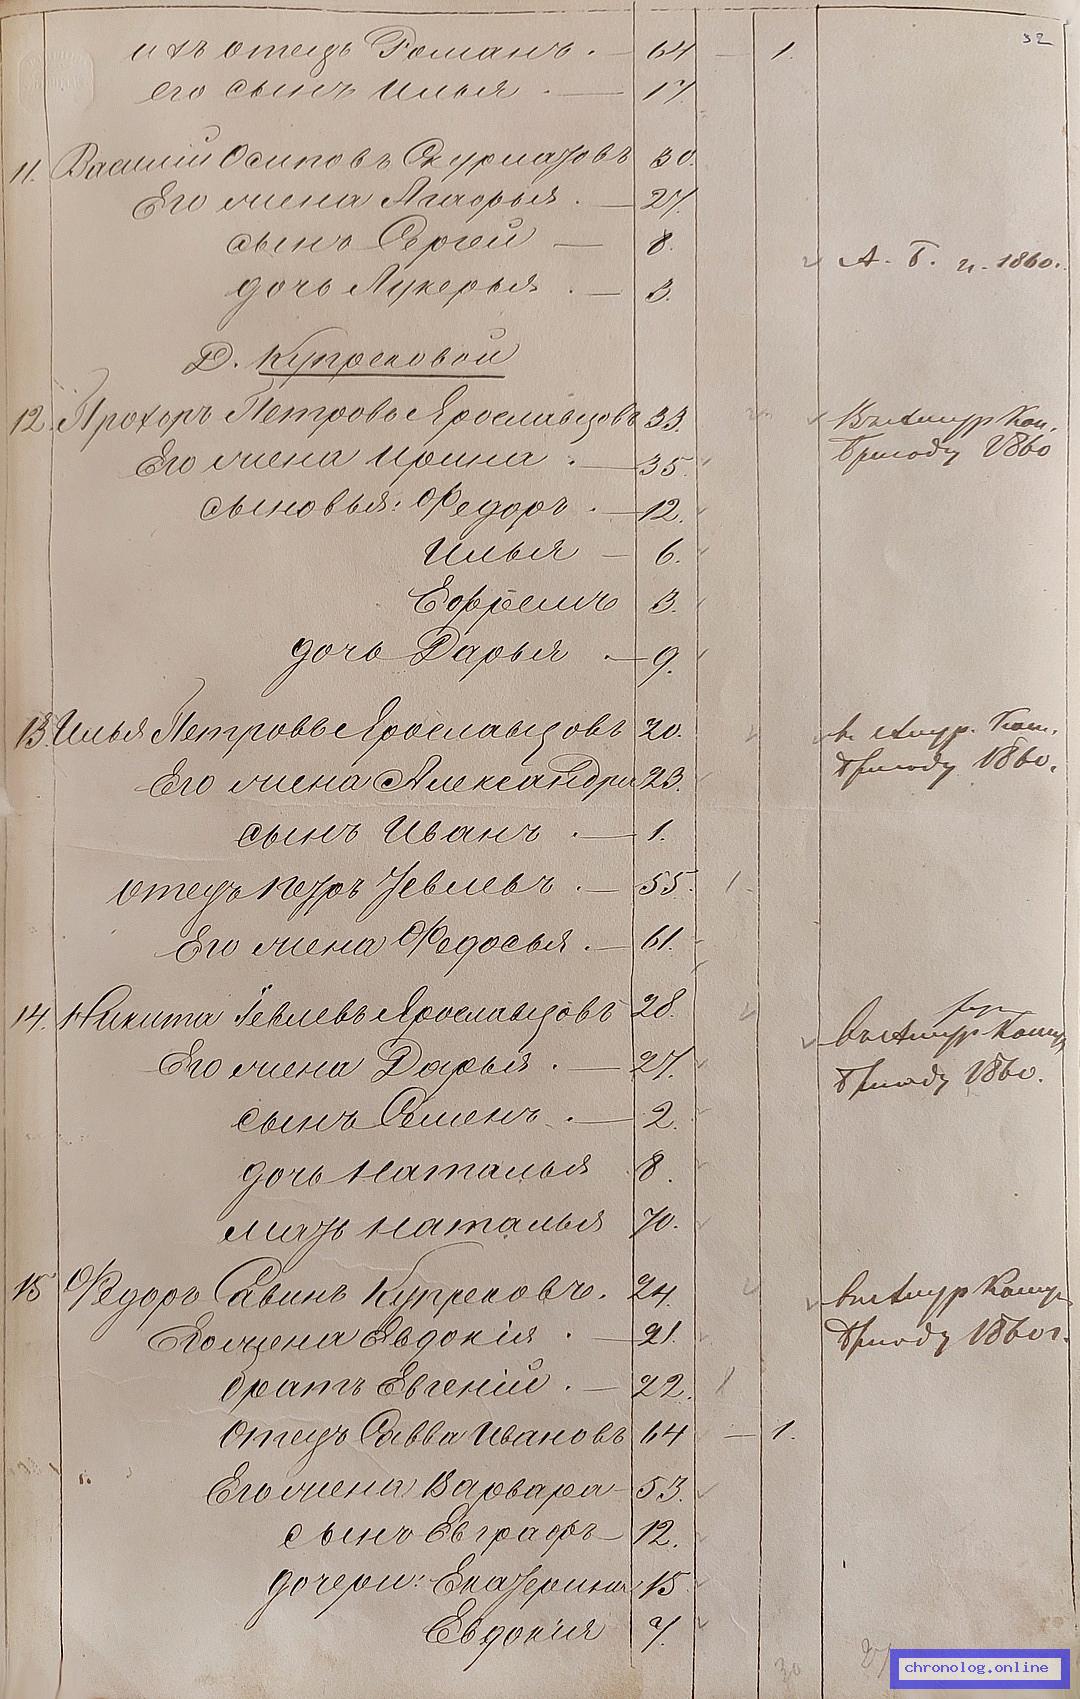 32
ихъ отецъ Романъ. — 64 — 1.
его сынъ Илья . — 17
11. Василий Осиповъ Скурлатовъ 30.
Его жена Агафья . — 27.
сынъ Сергей — 8.
дочь Лукерья . — 3.
А. Б. 1860.
Д. Купрековой
12. Прохоръ Петровъ Ярославцовъ 33.
Его жена Ирина . — 35.
сыновья: Федоръ . — 12.
Илья — 6.
Ефремъ 3.
дочь Дарья . — 9.
въ Амур Кон.
Бригаду 1860
13. Илья Петровъ Ярославцовъ 20.
Его жена Александра 23.
сынъ Иванъ . — 1.
отецъ Петръ Іевлевъ . — 55. 1.
Его жена Федосья . — 61.
в. Амур. Кон.
Бригаду 1860.
14. Никита Іевлевъ Ярославцовъ 28.
Его жена Дарья . — 27.
сынъ Семенъ . — 2.
дочь Наталья 8.
мать Наталья 70.
въ Амур Конную
Бригаду 1860.
15 Федоръ Савинъ Купрековъ. 24.
Его жена Евдокія . — 21.
братъ Евгеній . — 22. 1
отецъ Савва Ивановъ 64 — 1.
Его жена Варвара — 53.
сынъ Евграфъ — 12.
дочери: Екатерина 15
Евдокия 7.
въ Амур Конную
Бригаду 1860 г.
30
chronolog.online